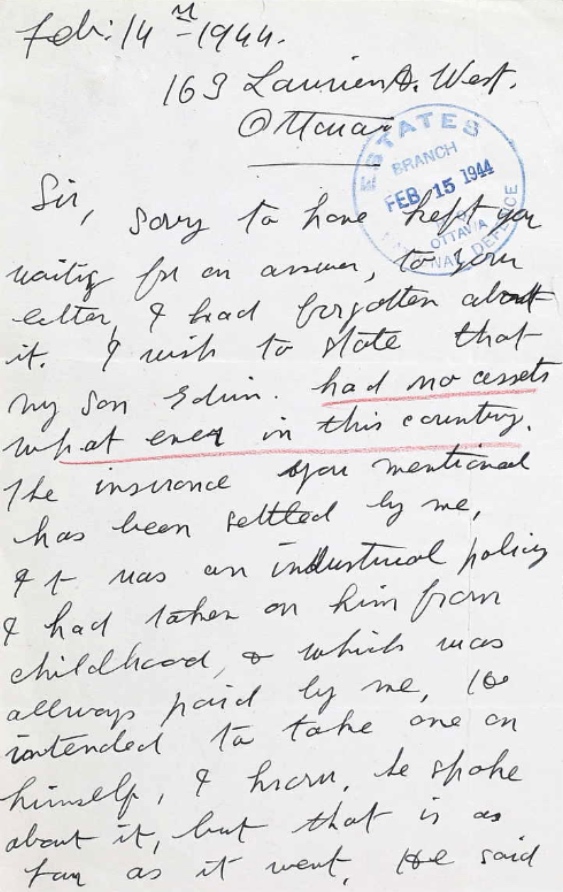 Feb: 14th - 1944.
163 Laurier A. West.
Ottawa
ESTATES
BRANCH
FEB 15 1944
OTTAWA
NATIONAL DEFENCE
Sir,
Sorry to have kept you
waiting for an answer, to your
letter, I had forgotten about
it. I wish to state that
my son Edwin. had no assets
what ever in this country.
The insurance you mentioned
has been settled by me,
It was an industrial policy
I had taken on him from
childhood, & which was
allways paid by me, He
intended to take one on
himself, I know, he spoke
about it, but that is as
far as it went. He said